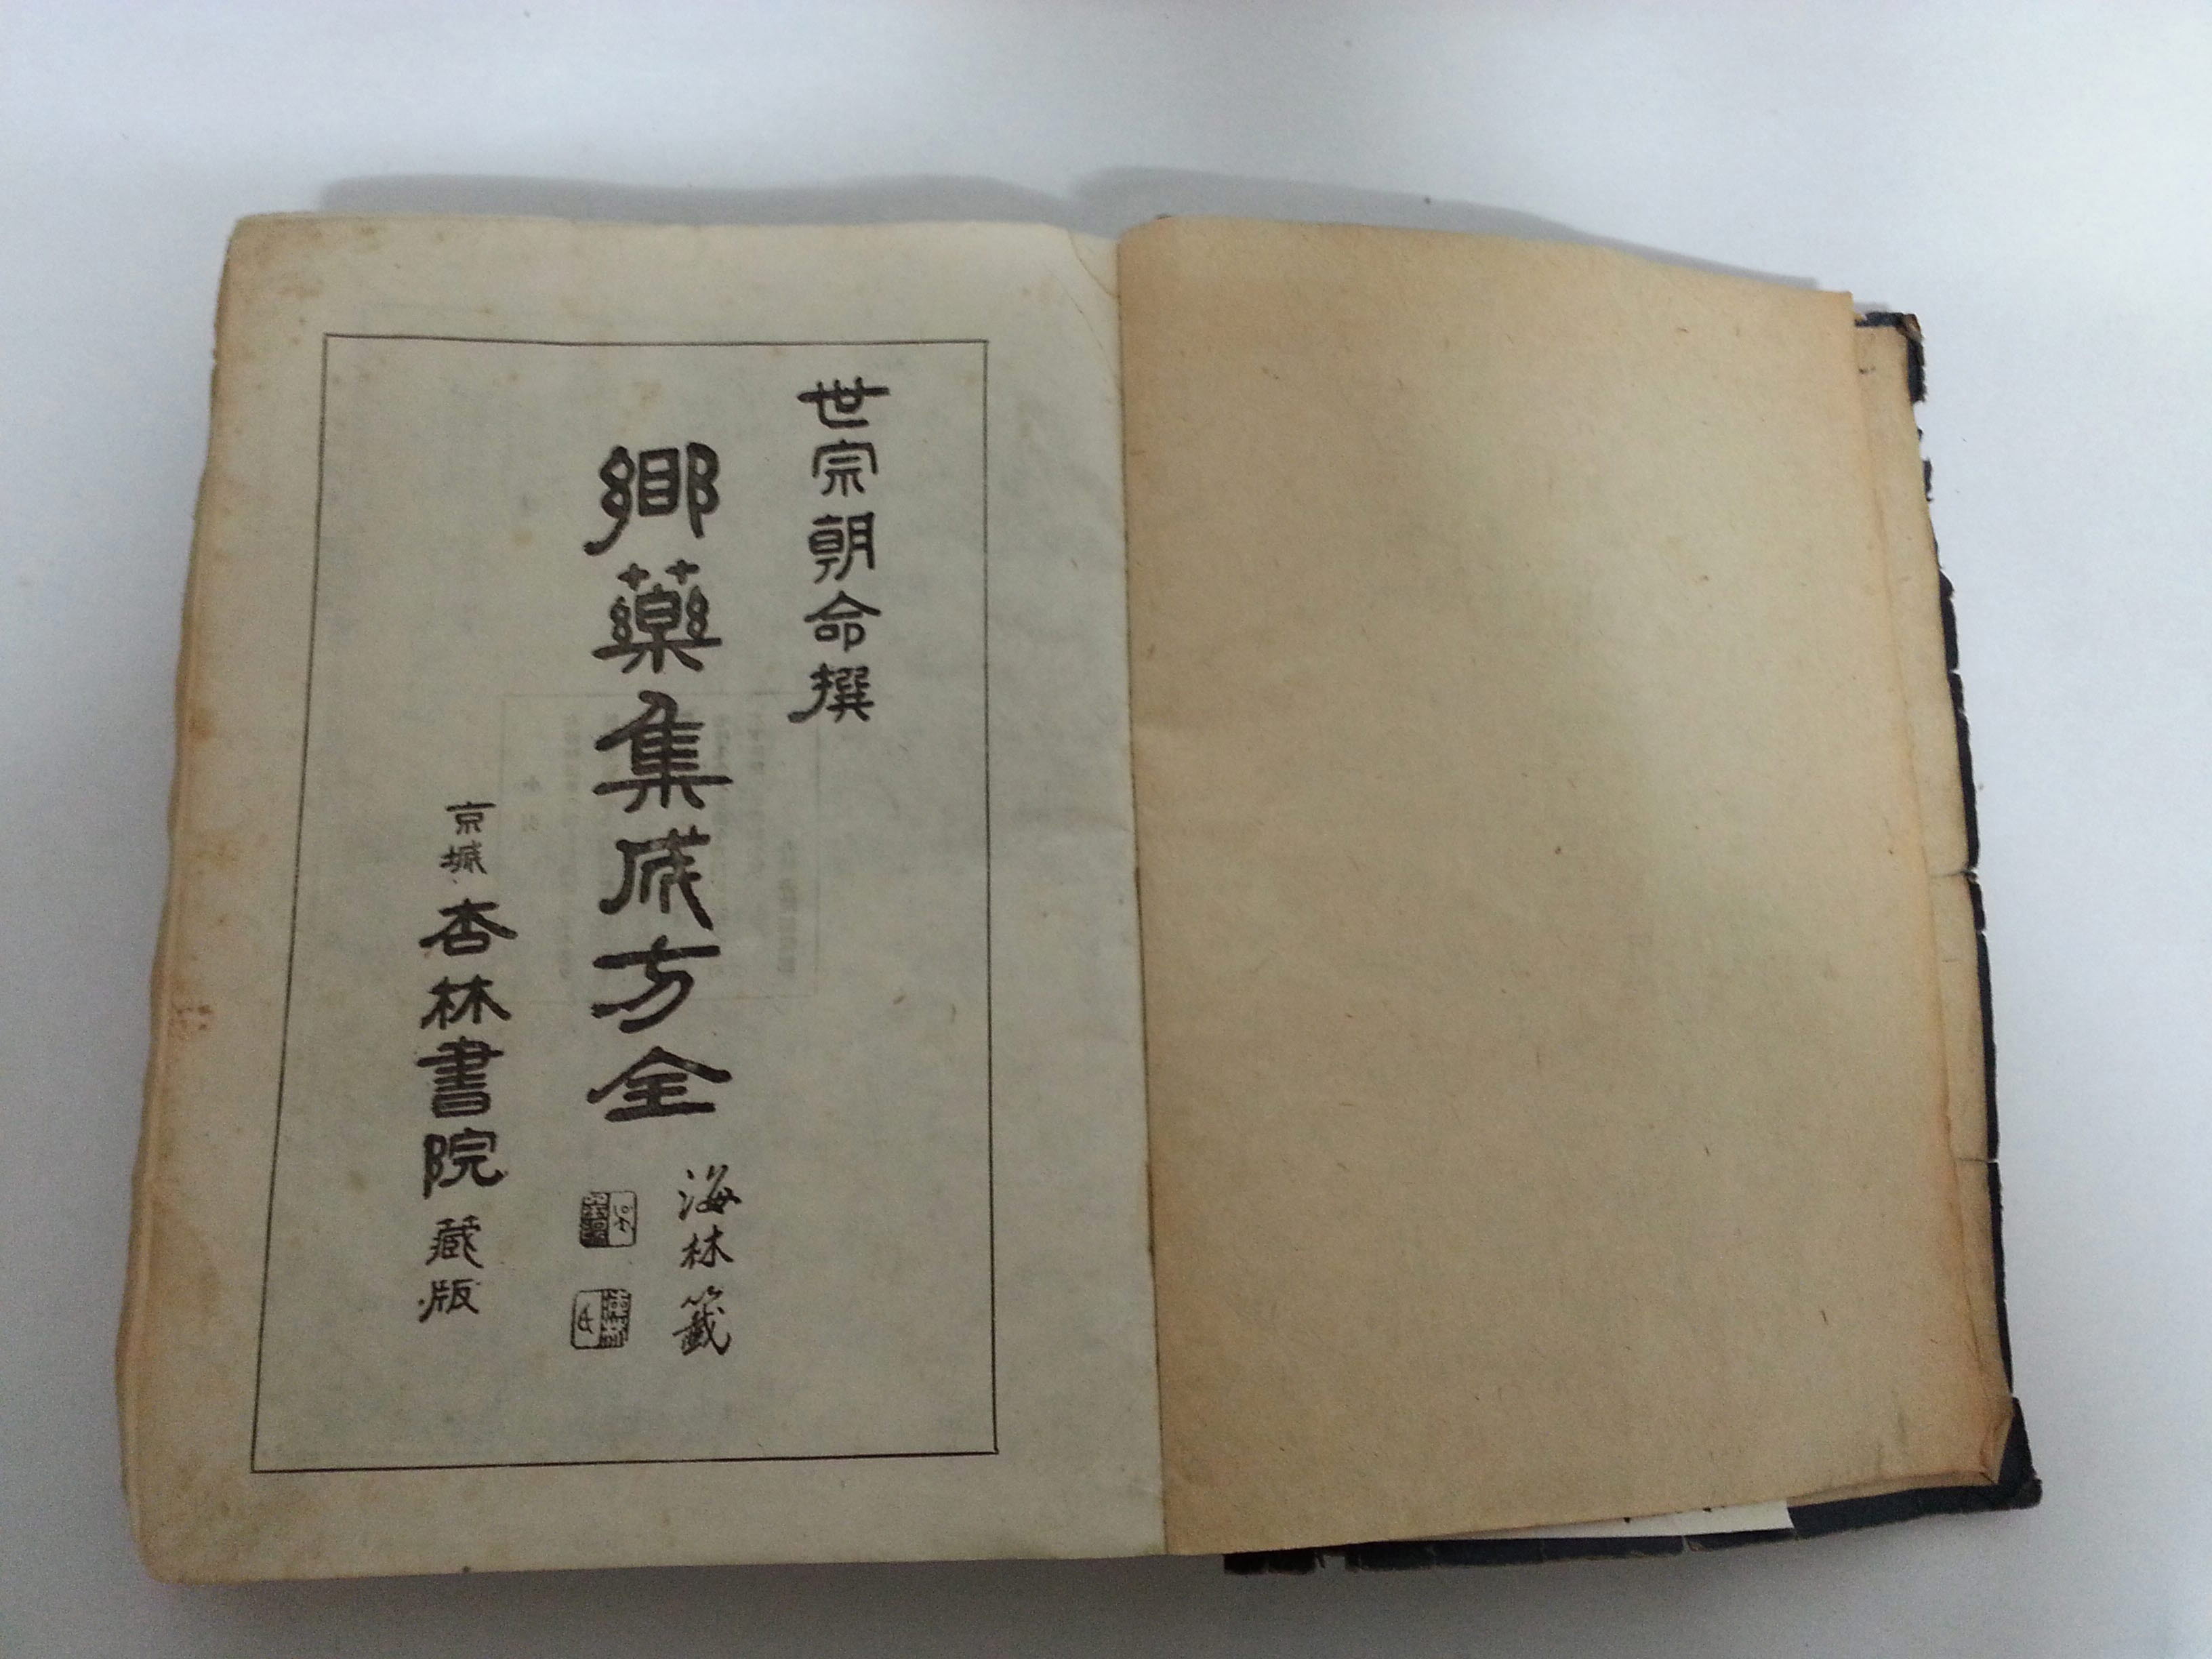 世宗朝命撰
鄕藥集成方全
海林籤
京城 杏林書院 藏版